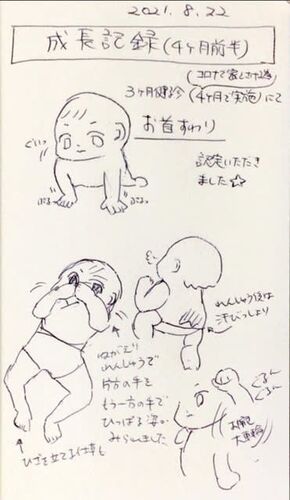 2021.8.22
成長記録(4ヶ月前半)
3ヶ月健診(4ヶ月で実施)にて
お首すわり
認定いただき
ました☆
ぐいっ
ぷる。
ぷる。
れんしゅう後は
汗びっしょり
ねがえり
れんしゅうで
片方の手を
もう一方の手で
ひっぱる姿が
みられました
ひざを立てる仕草も
ぐるーん
ぐるーん
お腕
大車輪